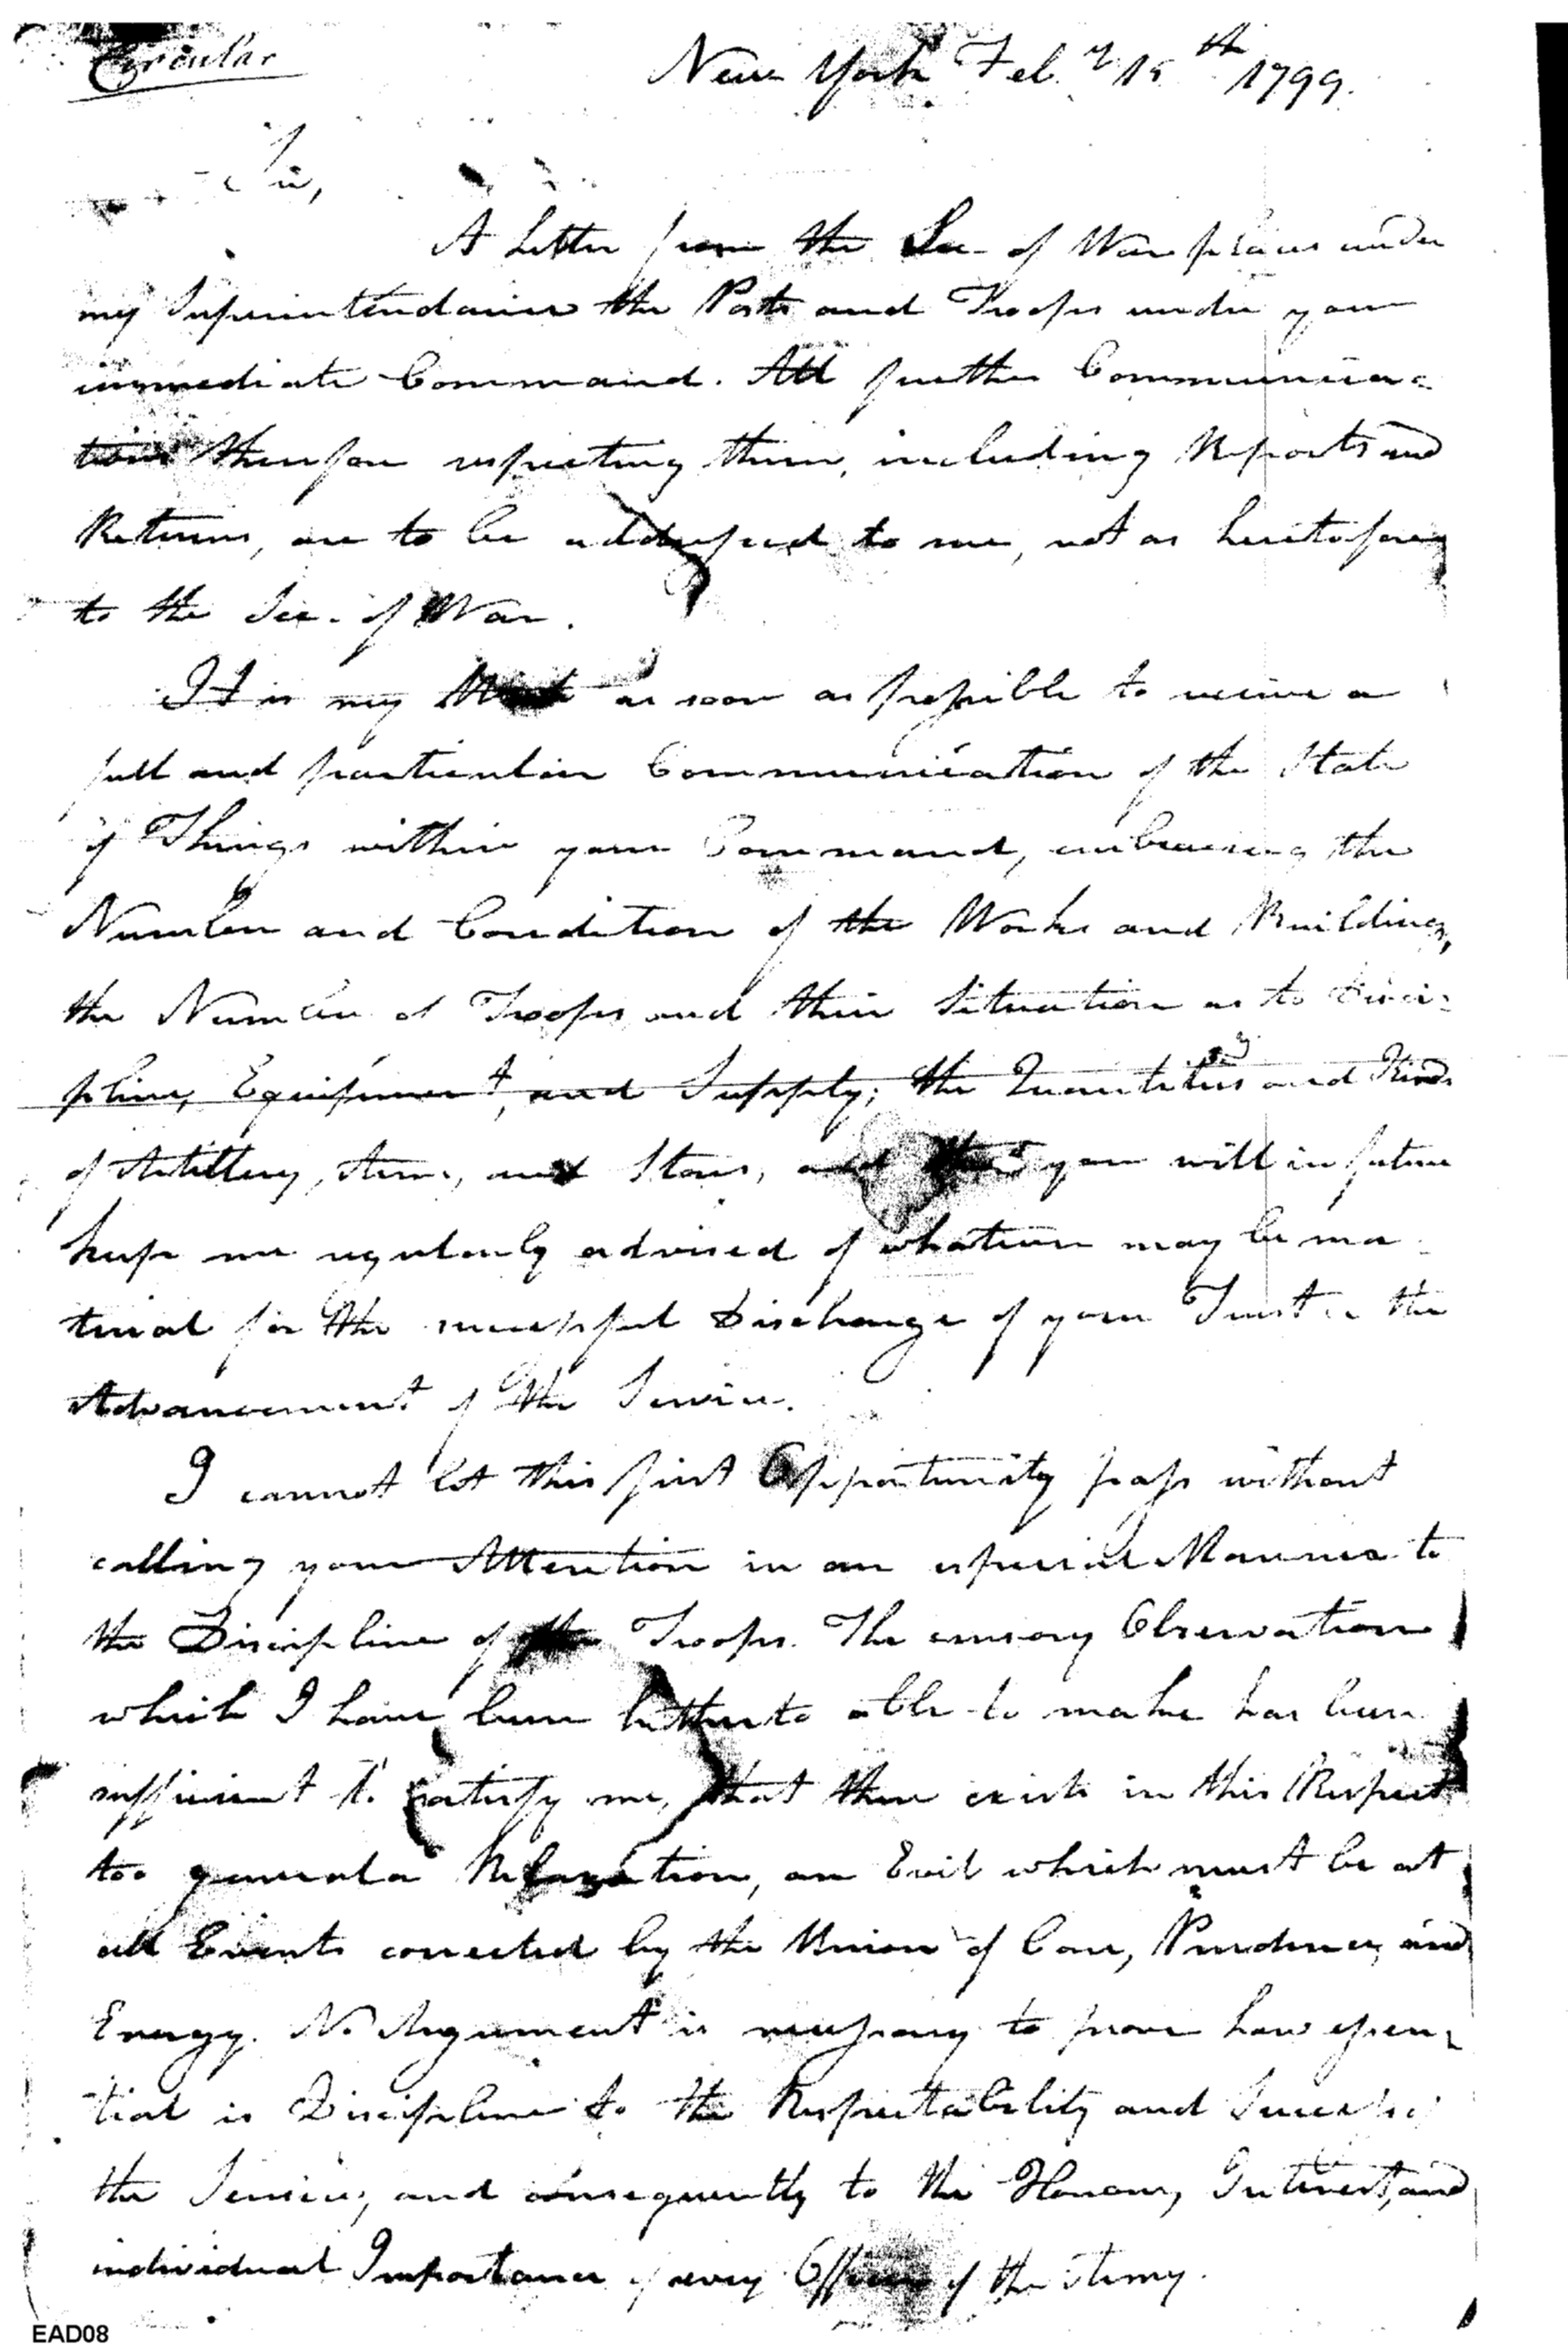 Circular
New York Feb.y 15th 1799.
Sir,
A Letter from the Sec. of War places under
my Superintendance the Posts and Troops under your
immediate Command. All further Communica=
tions therefore respecting them, including Reports and
Returns, are to be addressed to me, not as heretofore,
to the Sec. of War.
It is my as soon as possible to receive a
full and particular Communication of the State
of Things within your Command, embracing the
Number and Condition of the Works and Buildings,
the Number of Troops and their Situation as to Disci=
pline, Equipment, and Supply; the and Kinds
of Artillery, Arms, and Stores, and you will in future
keep me regularly advised of whatever may be ma
terial for the successful Discharge of your Trust & the
Advancement of the Service.
I cannot let this first Opportunity pass without
calling your Attention in an especial Manner to
the Discipline of the Troops. The cursory Observation
which I have been hitherto able to make has been
sufficient to satisfy me, that there exists in this Respect
too general a Relaxation, an Evil which must be at
all Events corrected by the Union of Care, Prudence, and
Energy. No Argument is necessary to prove how essen=
tial is Discipline to the Respectability and Success of
the Service, and consequently to the Honour, Interest, and
individual Importance of every Officer of the Army.
EAD08